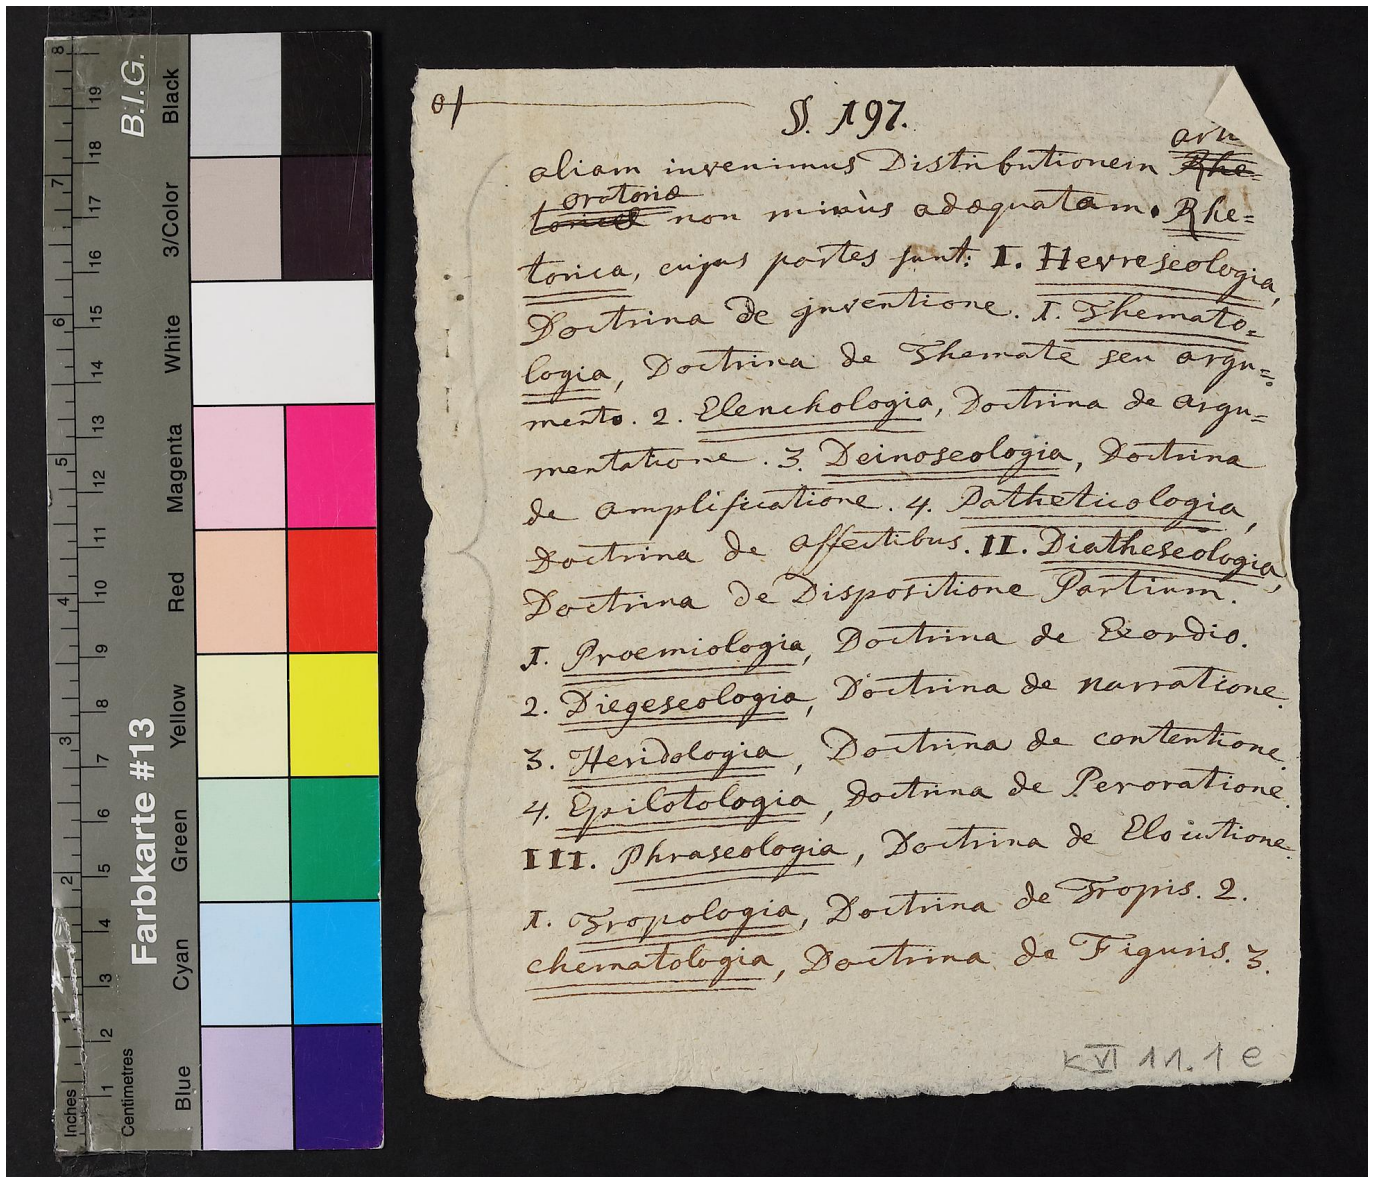 B.I.G.
Farbkarte #13
Black
3/Color
White
Magenta
Red
Yellow
Green
Cyan
Blue
Inches 1 2 3 4 5 6 7 8
Centimetres 1 2 3 4 5 6 7 8 9 10 11 12 13 14 15 16 17 18 19
§. 197.
aliam invenimus Distributionem Rhe=
oratoriæ
toricæ non minùs adæquatam. Rhe=
torica, cujus partes sunt: I. Hevreseologia,
Doctrina de jnventione. 1. Themato=
logia, Doctrina de Themate seu argu=
mento. 2. Elenchologia, Doctrina de argu=
mentatione. 3. Deinoseologia, Doctrina
de amplificatione. 4. Patheticologia,
Doctrina de affectibus. II. Diatheseologia,
Doctrina de Dispositione Partium.
1. Proemiologia, Doctrina de Exordio.
2. Diegeseologia, Doctrina de narratione.
3. Heridologia, Doctrina de contentione.
4. Epilotologia, Doctrina de Peroratione.
III. Phraseologia, Doctrina de Elocutione.
1. Tropologia, Doctrina de Tropis. 2.
chematologia, Doctrina de Figuris. 3.
K VI 11. 1 e